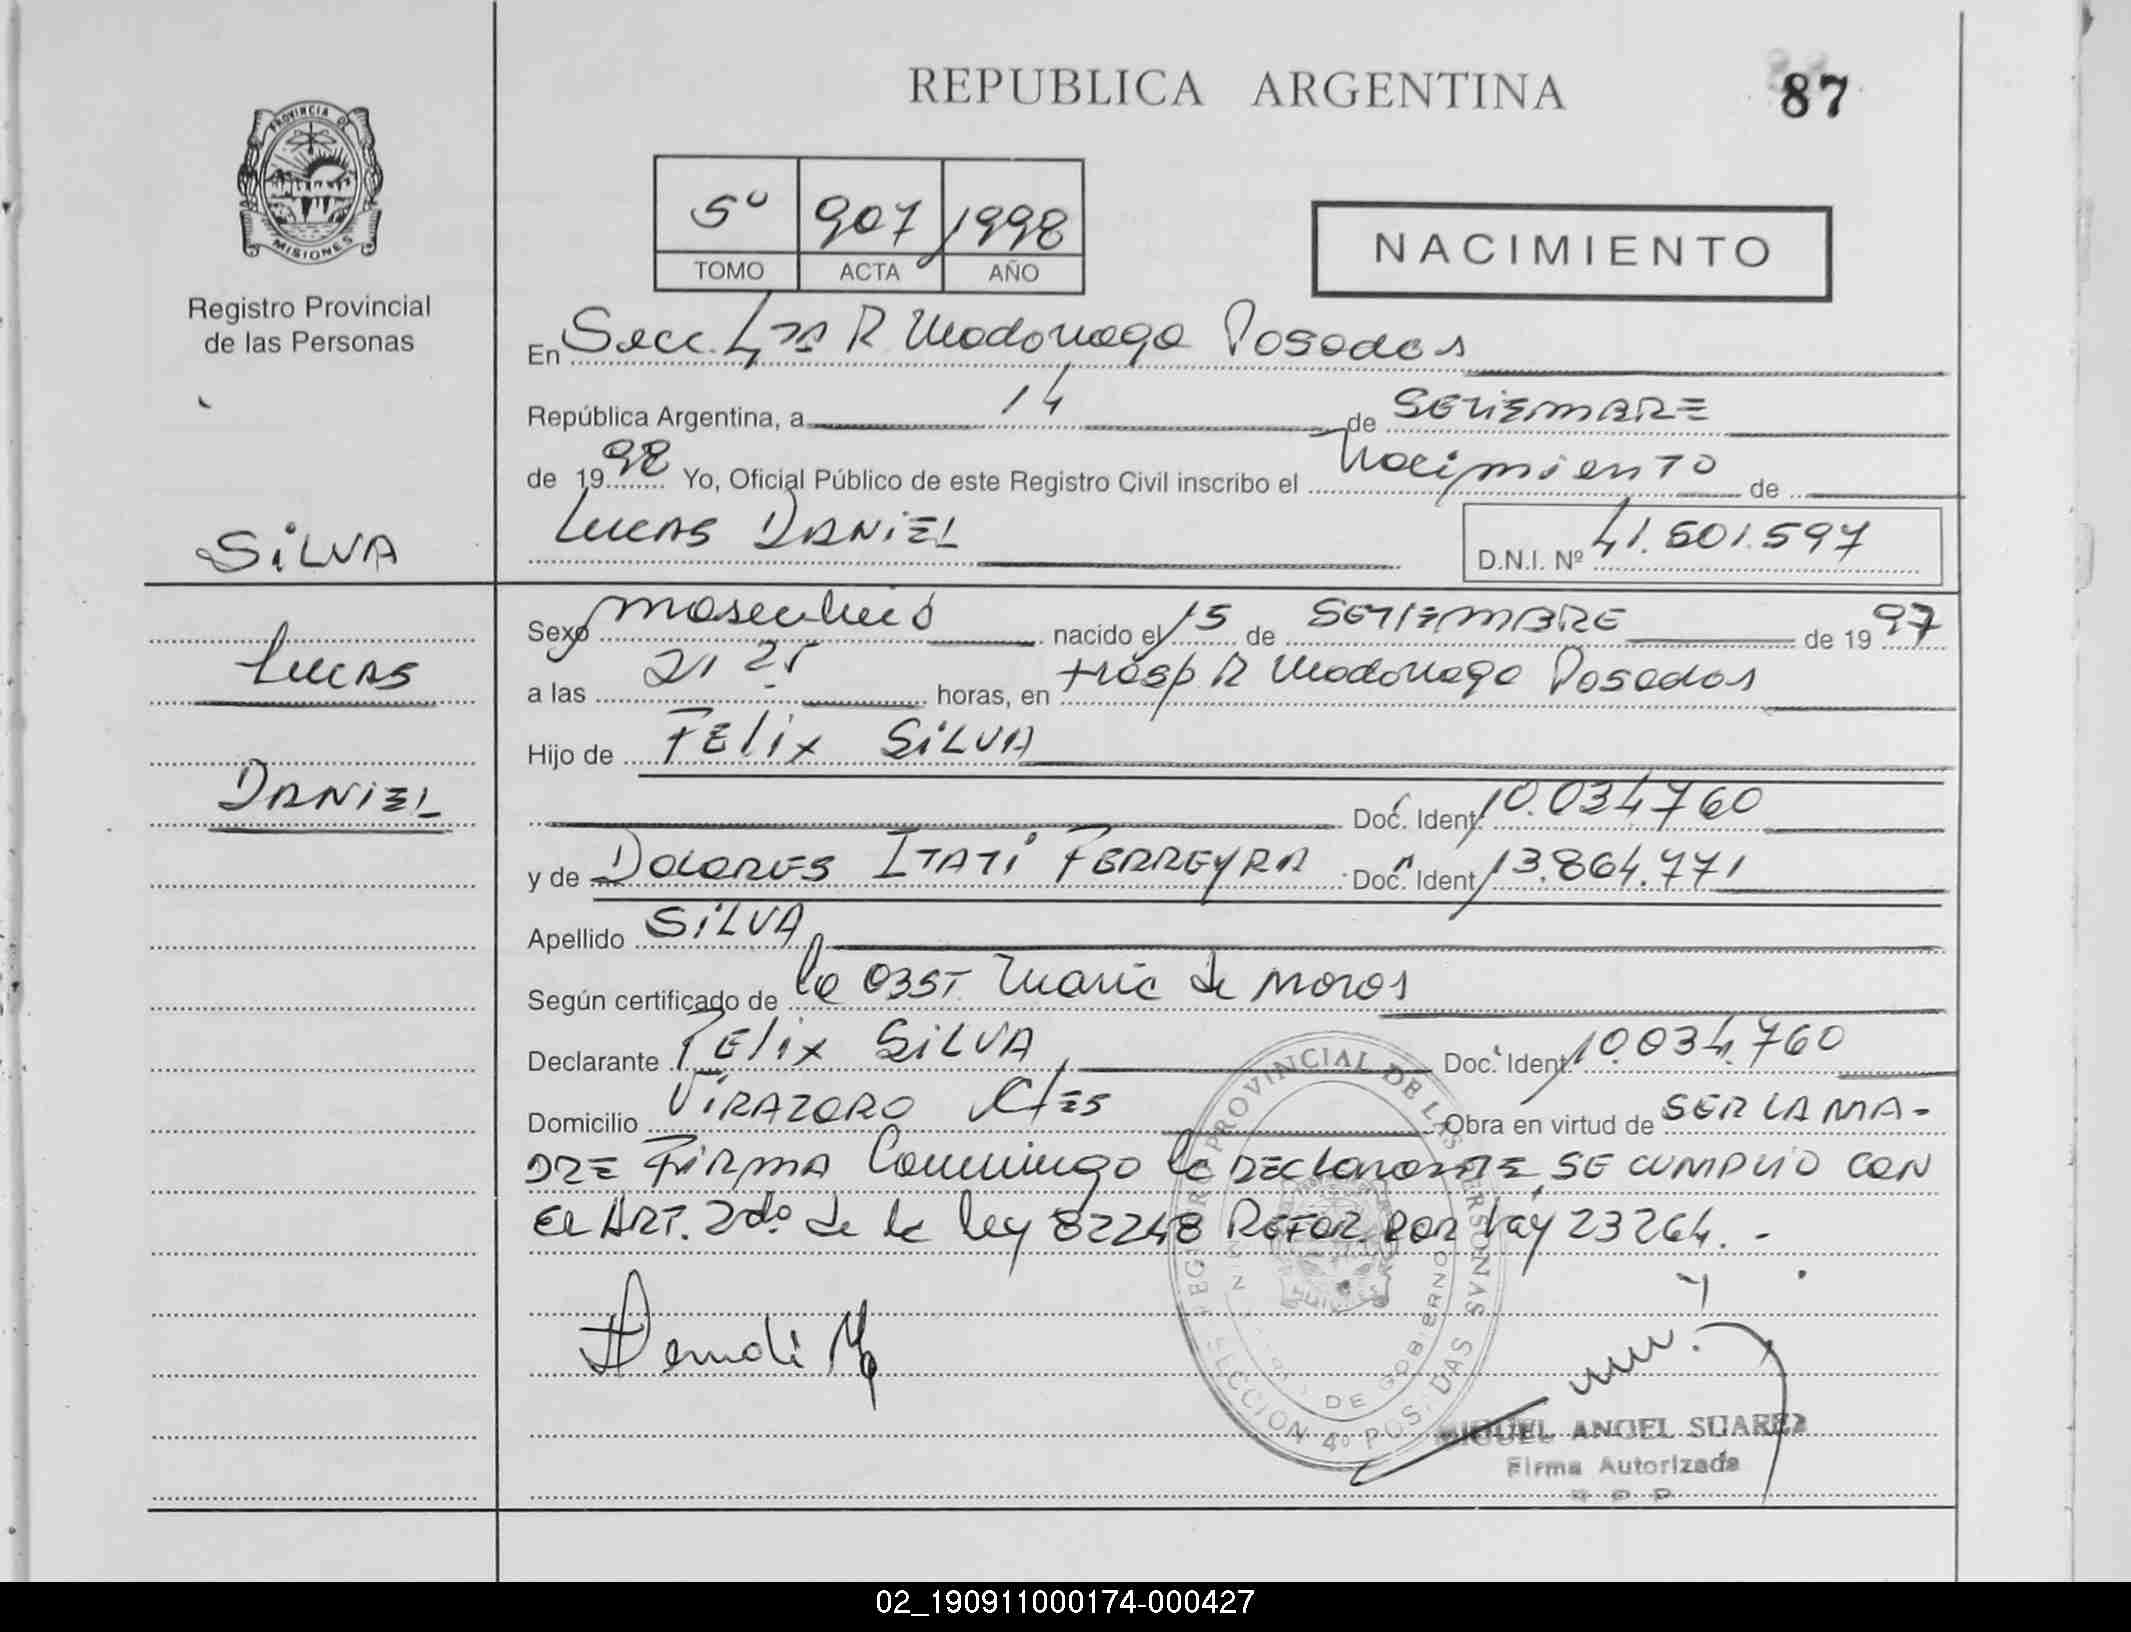 REPUBLICA ARGENTINA
87
PROVINCIA DE
MISIONES
Registro Provincial
de las Personas
5º 907 1998
TOMO ACTA AÑO
NACIMIENTO
En Secc. 4ta R Madariaga Posadas
República Argentina, a 14 de SETIEMBRE
de 1998 Yo, Oficial Público de este Registro Civil inscribo el Nacimiento de
LUCAS DANIEL
D.N.I. Nº 41.501.597
SILVA
LUCAS
DANIEL
Sexo masculino nacido el 15 de SETIEMBRE de 1997
a las 21 25 horas, en Hosp R Madariaga Posadas
Hijo de FELIX SILVA
Doc. Ident. 10.034760
y de DOLORES ITATI FERREYRA Doc. Ident. 13.864.771
Apellido SILVA
Según certificado de la OBST Maria de Moros
Declarante FELIX SILVA Doc. Ident. 10.034.760
Domicilio VIRAZORO Ctes Obra en virtud de SER LA MA-
DRE FIRMA Conmigo la DECLARANTE, SE CUMPLIO CON
EL ART. 2do. de la ley 82248 REFOR. POR Ley 23264. -
REGISTRO PROVINCIAL DE LAS PERSONAS
DE GOBIERNO
SECCION 4º POSADAS
MIGUEL ANGEL SUAREZ
Firma Autorizada
02_190911000174-000427